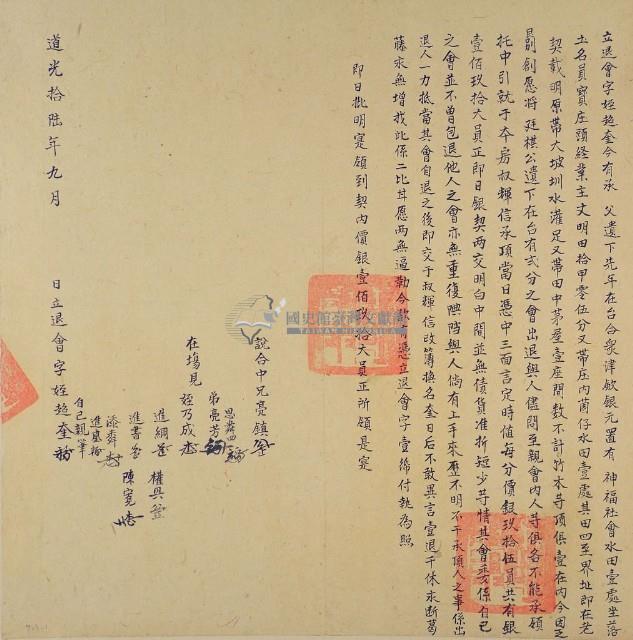 立退會字姪超奎今有承　父遺下先年在台合衆津飲銀元置有　神福社會水田壹處坐落
土名員寶庄頭經業主丈明田拾甲零伍分又帶庄內菌仔水田壹處其田四至界址即在老
契載明原帶大坡圳水灌足又帶田中茅屋壹座間數不計竹木等項俱壹在內今因乏
銀創愿將廷棋公遺下在台有弍分之會出退與人儘問至親會內人等俱各不能承領
托中引就于本房叔輝信承頂當日憑中三面言定時值每分價銀玖拾伍員共有銀
壹佰玖拾大員正即日銀契两交明白中間並無債貨准折短少等情其會系係自己
之會並不曾包退他人之會亦無重復典掛與人倘有上手來歷不明不干承頂人之事係出
退人一力抵當其會自退之後即交于叔輝信改簿換名奎日后不敢異言壹退千休永断葛
藤永無增找此係二比甘愿两無逼勒今欲有憑立退會字壹紙付執為照
即日批明寔領到契內價銀壹佰玖拾大員正所領是寔
說合中兄亮鎮
思舞四
弟亮芳
在塲見姪乃成
進綱
權興
進書
陳寬
添舜
進盛
自己親筆
道光拾陸年九月　日立退會字姪超奎
國史館臺灣文獻館
TAIWAN HISTORICA